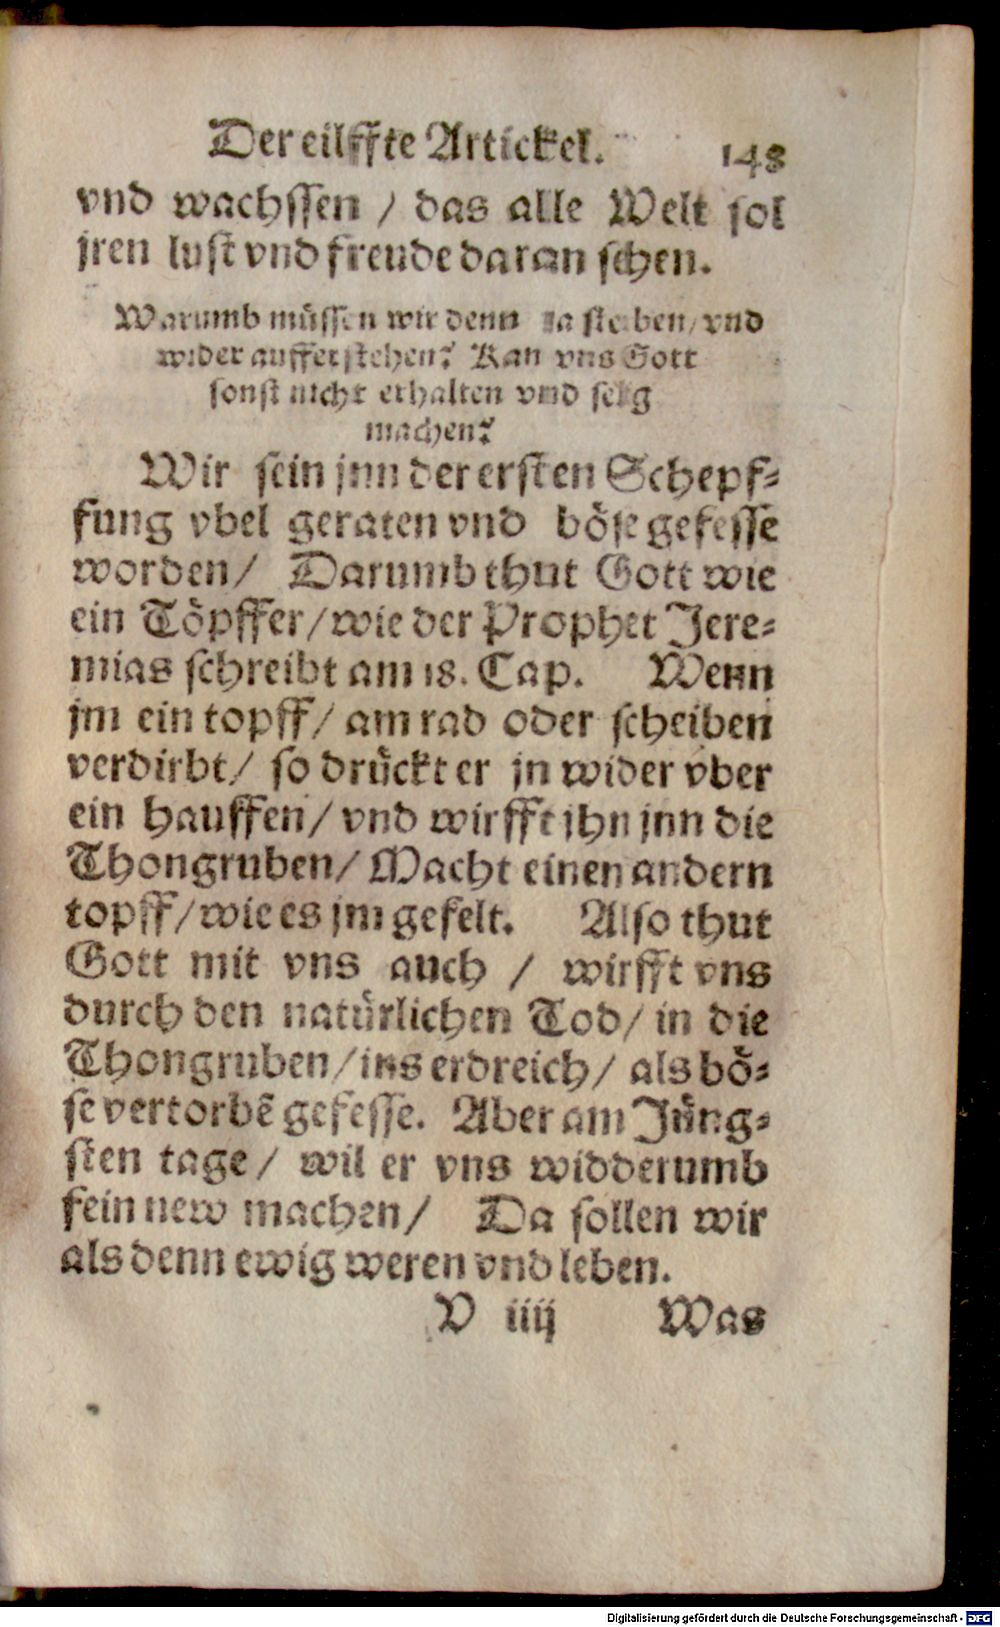 Der eilffte Artickel. 148
vnd wachssen / das alle Welt sol
jren lust vnd freude daran sehen.
Warumb müssen wir denn ja sterben/ vnd
wider aufferstehen? Kan vns Gott
sonst nicht erhalten vnd selig
machen?
Wir sein jnn der ersten Schepf-
fung vbel geraten vnd böse gefesse
worden/ Darumb thut Gott wie
ein Töpffer/ wie der Prophet Jere-
mias schreibt am 18. Cap. Wenn
jm ein topff/ am rad oder scheiben
verdirbt/ so drückt er jn wider vber
ein hauffen/ vnd wirfft jhn jnn die
Thongruben/ Macht einen andern
topff/ wie es jm gefelt. Also thut
Gott mit vns auch / wirfft vns
durch den natürlichen Tod/ in die
Thongruben/ ins erdreich/ als bö-
se vertorbē gefesse. Aber am Jüng-
sten tage/ wil er vns widderumb
fein new machen/ Da sollen wir
als denn ewig weren vnd leben.
V iiij Was
Digitalisierung gefördert durch die Deutsche Forschungsgemeinschaft - DFG